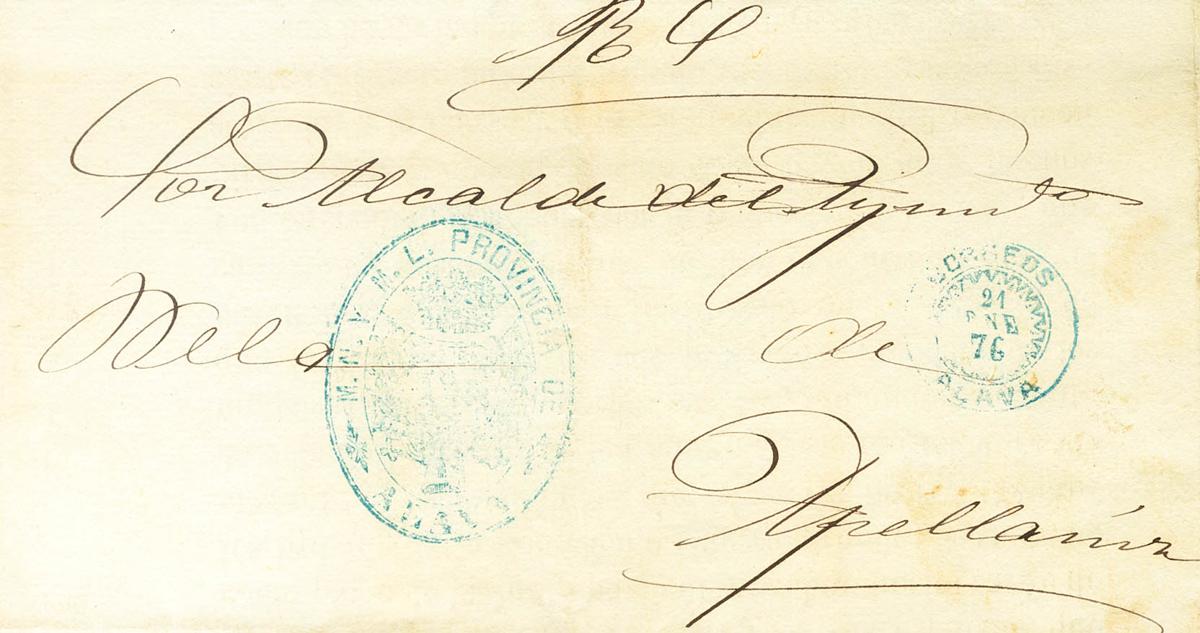 Sor Alcalde del Ayunto
de
Apellániz
M. N. Y M. L. PROVINCIA DE
ALAVA
CORREOS
21
ENE
76
ALAVA